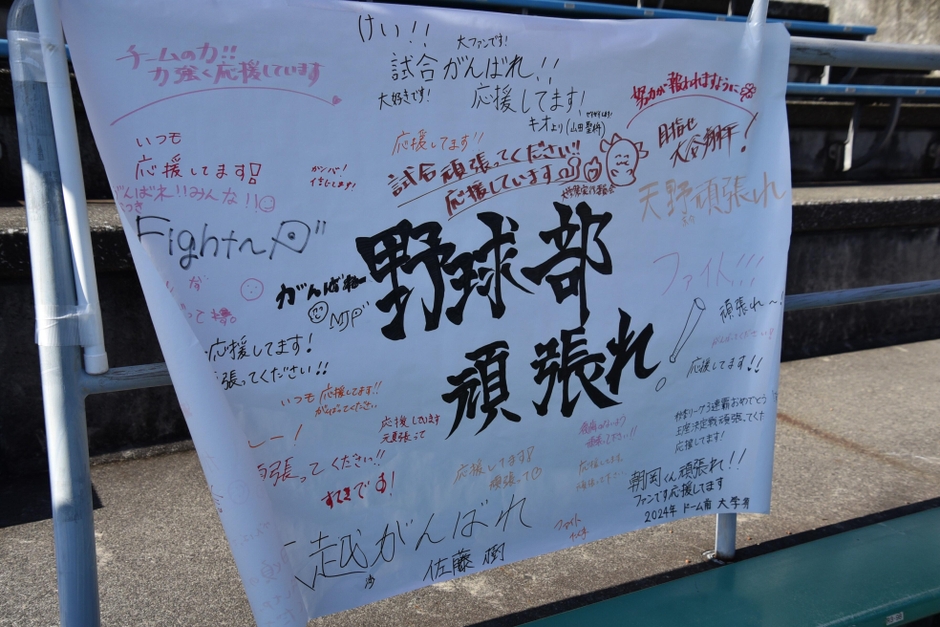 チームの力!!
力強く応援しています
けい!!
大ファンです!
試合がんばれ!!
大好きです!
応援してます!
キオより(山田
努力が報われますように
目指せ
大谷翔平!
いつも
応援してます!
がんばれ!!みんな!!
応援してます!!
試合頑張ってください!!
応援しています
天野頑張れ
Fight〜
がんばれー
NJP
野球部
頑張れ
ファイト!!!
頑張れ〜!
応援してます!!
応援してます!
張ってください!!
いつも応援してます!!
がんばってください
応援しています
頑張ってください!!
すてきです!
応援してます!
頑張って
応援してます
3連覇おめでとう
王座決定戦頑張ってくだ
応援します!
朝岡くん頑張れ!!
ファンです応援してます
2024年 ドーム前 大学
越がんばれ
佐藤 樹
ファイト